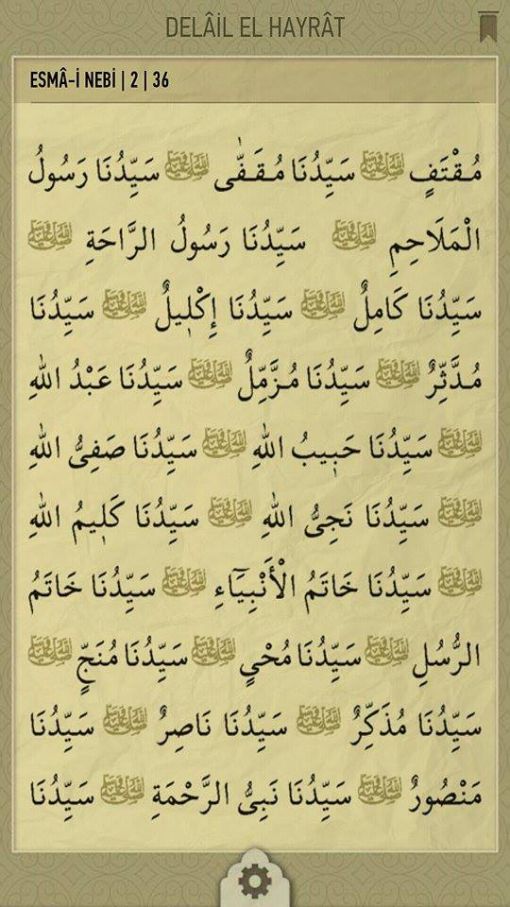 DELÂİL EL HAYRÂT
ESMÂ-İ NEBİ | 2 | 36
مُقْتَفٍ ﷺ سَيِّدُنَا مُقَفّٰى ﷺ سَيِّدُنَا رَسُولُ
الْمَلَاحِمِ ﷺ سَيِّدُنَا رَسُولُ الرَّاحَةِ ﷺ
سَيِّدُنَا كَامِلٌ ﷺ سَيِّدُنَا إِكْلِيلٌ ﷺ سَيِّدُنَا
مُدَّثِّرٌ ﷺ سَيِّدُنَا مُزَّمِّلٌ ﷺ سَيِّدُنَا عَبْدُ اللهِ
ﷺ سَيِّدُنَا حَبِيبُ اللهِ ﷺ سَيِّدُنَا صَفِىُّ اللهِ
ﷺ سَيِّدُنَا نَجِىُّ اللهِ ﷺ سَيِّدُنَا كَلِيمُ اللهِ
ﷺ سَيِّدُنَا خَاتَمُ الْأَنْبِيَآءِ ﷺ سَيِّدُنَا خَاتَمُ
الرُّسُلِ ﷺ سَيِّدُنَا مُحْيٍ ﷺ سَيِّدُنَا مُنَجٍّ ﷺ
سَيِّدُنَا مُذَكِّرٌ ﷺ سَيِّدُنَا نَاصِرٌ ﷺ سَيِّدُنَا
مَنْصُورٌ ﷺ سَيِّدُنَا نَبِىُّ الرَّحْمَةِ ﷺ سَيِّدُنَا